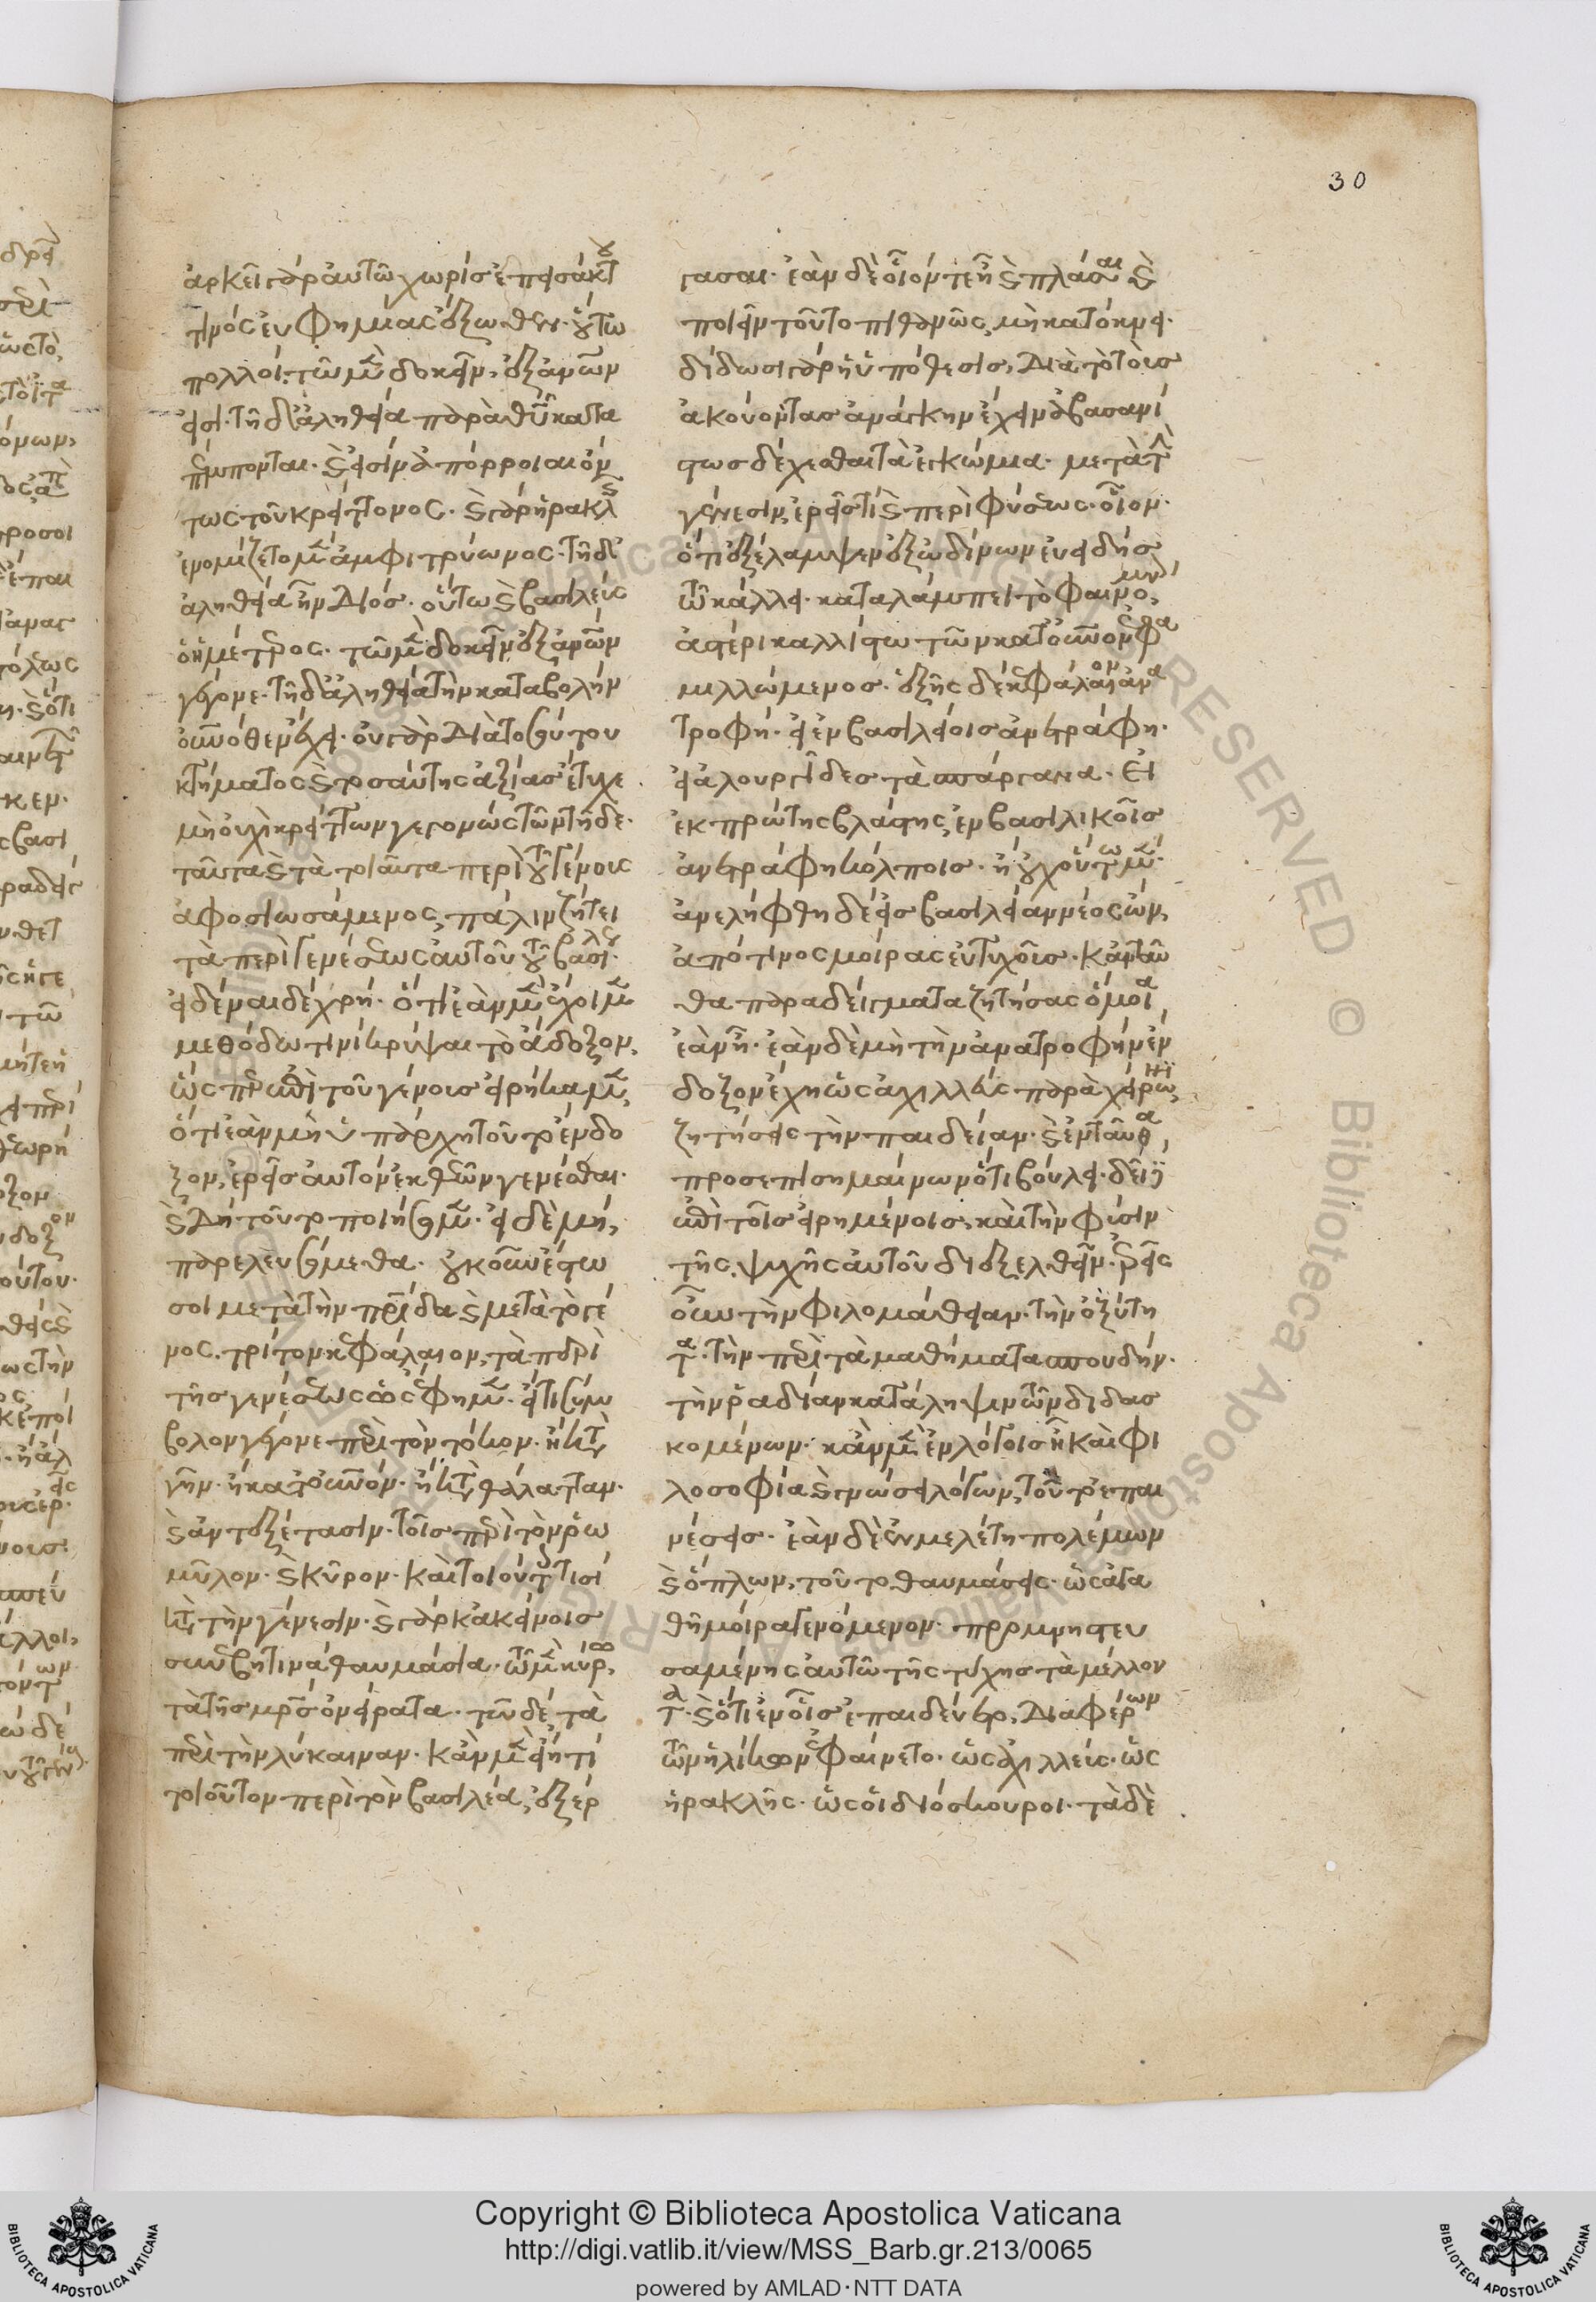 ἀρκεῖ γὰρ αὐτῶ χωρὶς ἐπεισάκτου
τινὸς εὐφημίας ἔξωθεν. οὕτω
πολλοὶ. τῶ μὲν δοκεῖν, ἐξ ἀνθρώπων
εἰσί. τῇ δ' ἀληθεία παρὰ θεοῦ κατα
πέμπονται. καὶ εἰσὶν ἀπόρροιαι ὄν
τως τοῦ κρείττονος. καὶ γὰρ ἡρακλῆς
ἐνομίζετο μὲν ἀμφιτρύωνος. τῇ δὲ
ἀληθεία ἦν Διός. οὕτω καὶ βασιλεὺς
ὁ ἡμέτερος. τῶ μὲν δοκεῖν ἐξ ἀνθρώπων
γέγονε. τῇ δ' ἀληθεία τὴν καταβολὴν
οὐρανόθεν ἔχει. οὐ γὰρ Διὰ τοσούτου
κτήματος καὶ τοσαύτης ἀξίας ἔτυχε.
μὴ οὐχὶ κρείττων γεγονὼς τῶν τῇδε.
ταῦτα καὶ τὰ τοιαῦτα περὶ τοῦ γένους
ἀφοσιωσάμενος, πάλιν ζήτει
τὰ περὶ γενέσεως αὐτοῦ τοῦ βασιλέως.
εἰδέναι δὲ χρή. ὅτι ἐὰν μὲν ἔχοιμεν
μεθόδω τινὶ κρύψαι τὸ ἄδοξον,
ὡς περ ἐπὶ τοῦ γένους εἰρήκαμεν,
ὅτι ἐὰν μὴ ὑπάρχη τοῦτο ἔνδο
ξον, ἐρεῖς αὐτὸν ἐκ θεῶν γενέσθαι.
καὶ Δὴ τοῦτο ποιήσομεν. εἰ δὲ μή,
παρελευσόμεθα. οὐκοῦν ἔστω
σοι μετὰ τὴν πατρίδα καὶ μετὰ τὸ γέ
νος. τρίτον κεφάλαιον, τὰ περὶ
τῆς γενέσεως ὡς ἔφημεν. εἴ τι σύμ
βολον γέγονε περὶ τὸν τόκον. ἢ κατὰ
γῆν. ἢ κατ' οὐρανόν. ἢ κατὰ θάλατταν.
καὶ ἀντεξέτασιν. τοῖς περὶ τὸν ῥω
μῦλον. καὶ κῦρον. καὶ τοιούτους τισὶ
κατὰ τὴν γένεσιν. καὶ γὰρ κἀκείνοις
συνέβη τινὰ θαυμάσια. τῶ μὲν κύρω,
τὰ τῆς μητρὸς ὀνείρατα. τῶ δὲ, τὰ
περὶ τὴν λύκαιναν. κἂν μὲν εἴη τι
τοιοῦτον περὶ τὸν βασιλέα, ἐξέρ
γασαι. ἐὰν δὲ οἷόν τε ἦ καὶ πλάσαι καὶ
ποιεῖν τοῦτο πιθανῶς, μὴ κατόκνει.
δίδωσι γὰρ ἡ ὑπόθεσις, Διὰ τὸ τοὺς
ἀκούοντας ἀνάγκην ἔχειν ἀβασανί
στως δέχεσθαι τὰ ἐγκώμια. μετὰ τὴν
γένεσιν, ἐρεῖς τὶ καὶ περὶ φύσεως. οἷον.
ὅτι ἐξέλαμψεν ἐξ ὠδίνων εὐειδὴς
τῶ κάλλει. καταλάμπει τὸ φαινόμενον,
ἀστέρι καλλίστω τῶν κατ' οὐρανὸν ἐφα
μιλλώμενος. ἑξῆς δὲ κεφάλαιον ἡ ἀνα
τροφή. εἰ ἐν βασιλείοις ἀνετράφη.
εἰ ἁλουργίδες τὰ σπάργανα. Εἰ
ἐκ πρώτης βλάστης, ἐν βασιλικοῖς
ἀνετράφη κόλποις. ἢ οὐχ οὕτω μέν.
ἀνελήφθη δὲ εἰς βασιλείαν νέος ὤν,
ἀπό τινος μοίρας εὐτυχοῦς. κἀνταῦ
θα παραδείγματα ζητήσας ὅμοια,
ἐὰν ἦ. ἐὰν δὲ μὴ τὴν ἀνατροφὴν ἔν
δοξον ἔχη ὡς ἀχιλλεὺς παρὰ χείρωνι,
ζητήσεις τὴν παιδείαν. καὶ ἐνταῦθα,
προσεπισημαίνων ὅτι βούλει. δεῖ
ἐπὶ τοῖς εἰρημένοις, καὶ τὴν φύσιν
τῆς ψυχῆς αὐτοῦ διεξελθεῖν. ἐρεῖς
οὖν τὴν φιλομάθειαν. τὴν ὀξύτη
τα. τὴν περὶ τὰ μαθήματα σπουδήν.
τὴν ῥαδίαν κατάληψιν τῶν διδας
κομένων. κἂν μὲν ἐν λόγοις ἦ καὶ φι
λοσοφία καὶ γνώσει λόγων, τοῦτο ἐπαι
νέσεις. ἐὰν δὲ ἐν μελέτη πολέμων
καὶ ὅπλων, τοῦτο θαυμάσεις. ὡς ἀγα
θῇ μοίρα γενόμενον. προμνηστευ
σαμένης αὐτῶ τῆς τύχης τὰ μέλλον
τα. καὶ ὅτι ἐν οἷς ἐπαιδεύετο, Διαφέρων
τῶν ἡλίκων ἐφαίνετο. ὡς ἀχιλλεύς. ὡς
ἡρακλῆς. ὡς οἱ διόσκουροι. τὰ δὲ
30
Copyright © Biblioteca Apostolica Vaticana
http://digi.vatlib.it/view/MSS_Barb.gr.213/0065
powered by AMLAD·NTT DATA